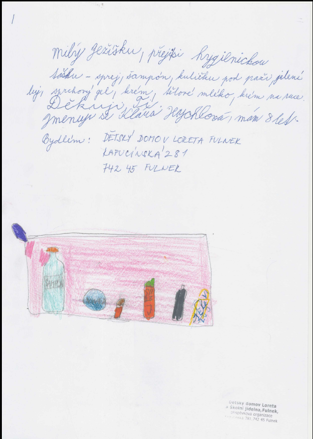 milý Ježíšku, přeji hygienickou
tašku – sprej, šampón, kuličku pod paže, jelení
lůj, sprchový gel, krém, tělové mléko, krém na ruce
Děkuji Ti.
Jmenuji se Klára, mám 8 let.
Bydlím: DĚTSKÝ DOMOV LORETA FULNEK
KAPUCÍNSKÁ 281
742 45 FULNEK